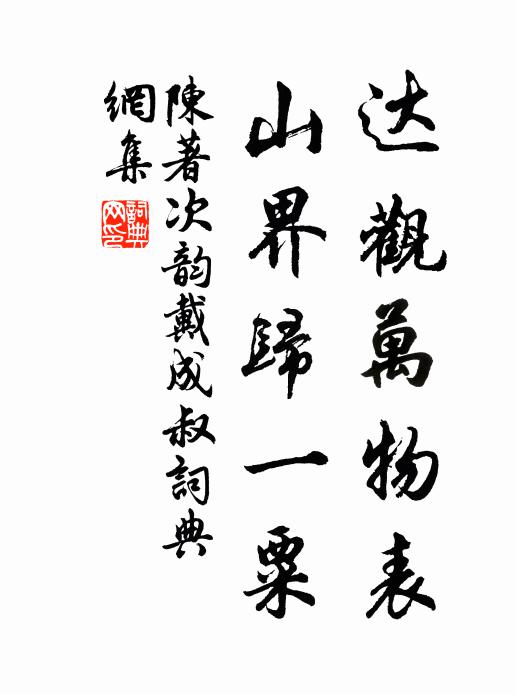 达觀萬物表
山界歸一粟
陳著次韵戴成叔詞典
網集
詞典
网印